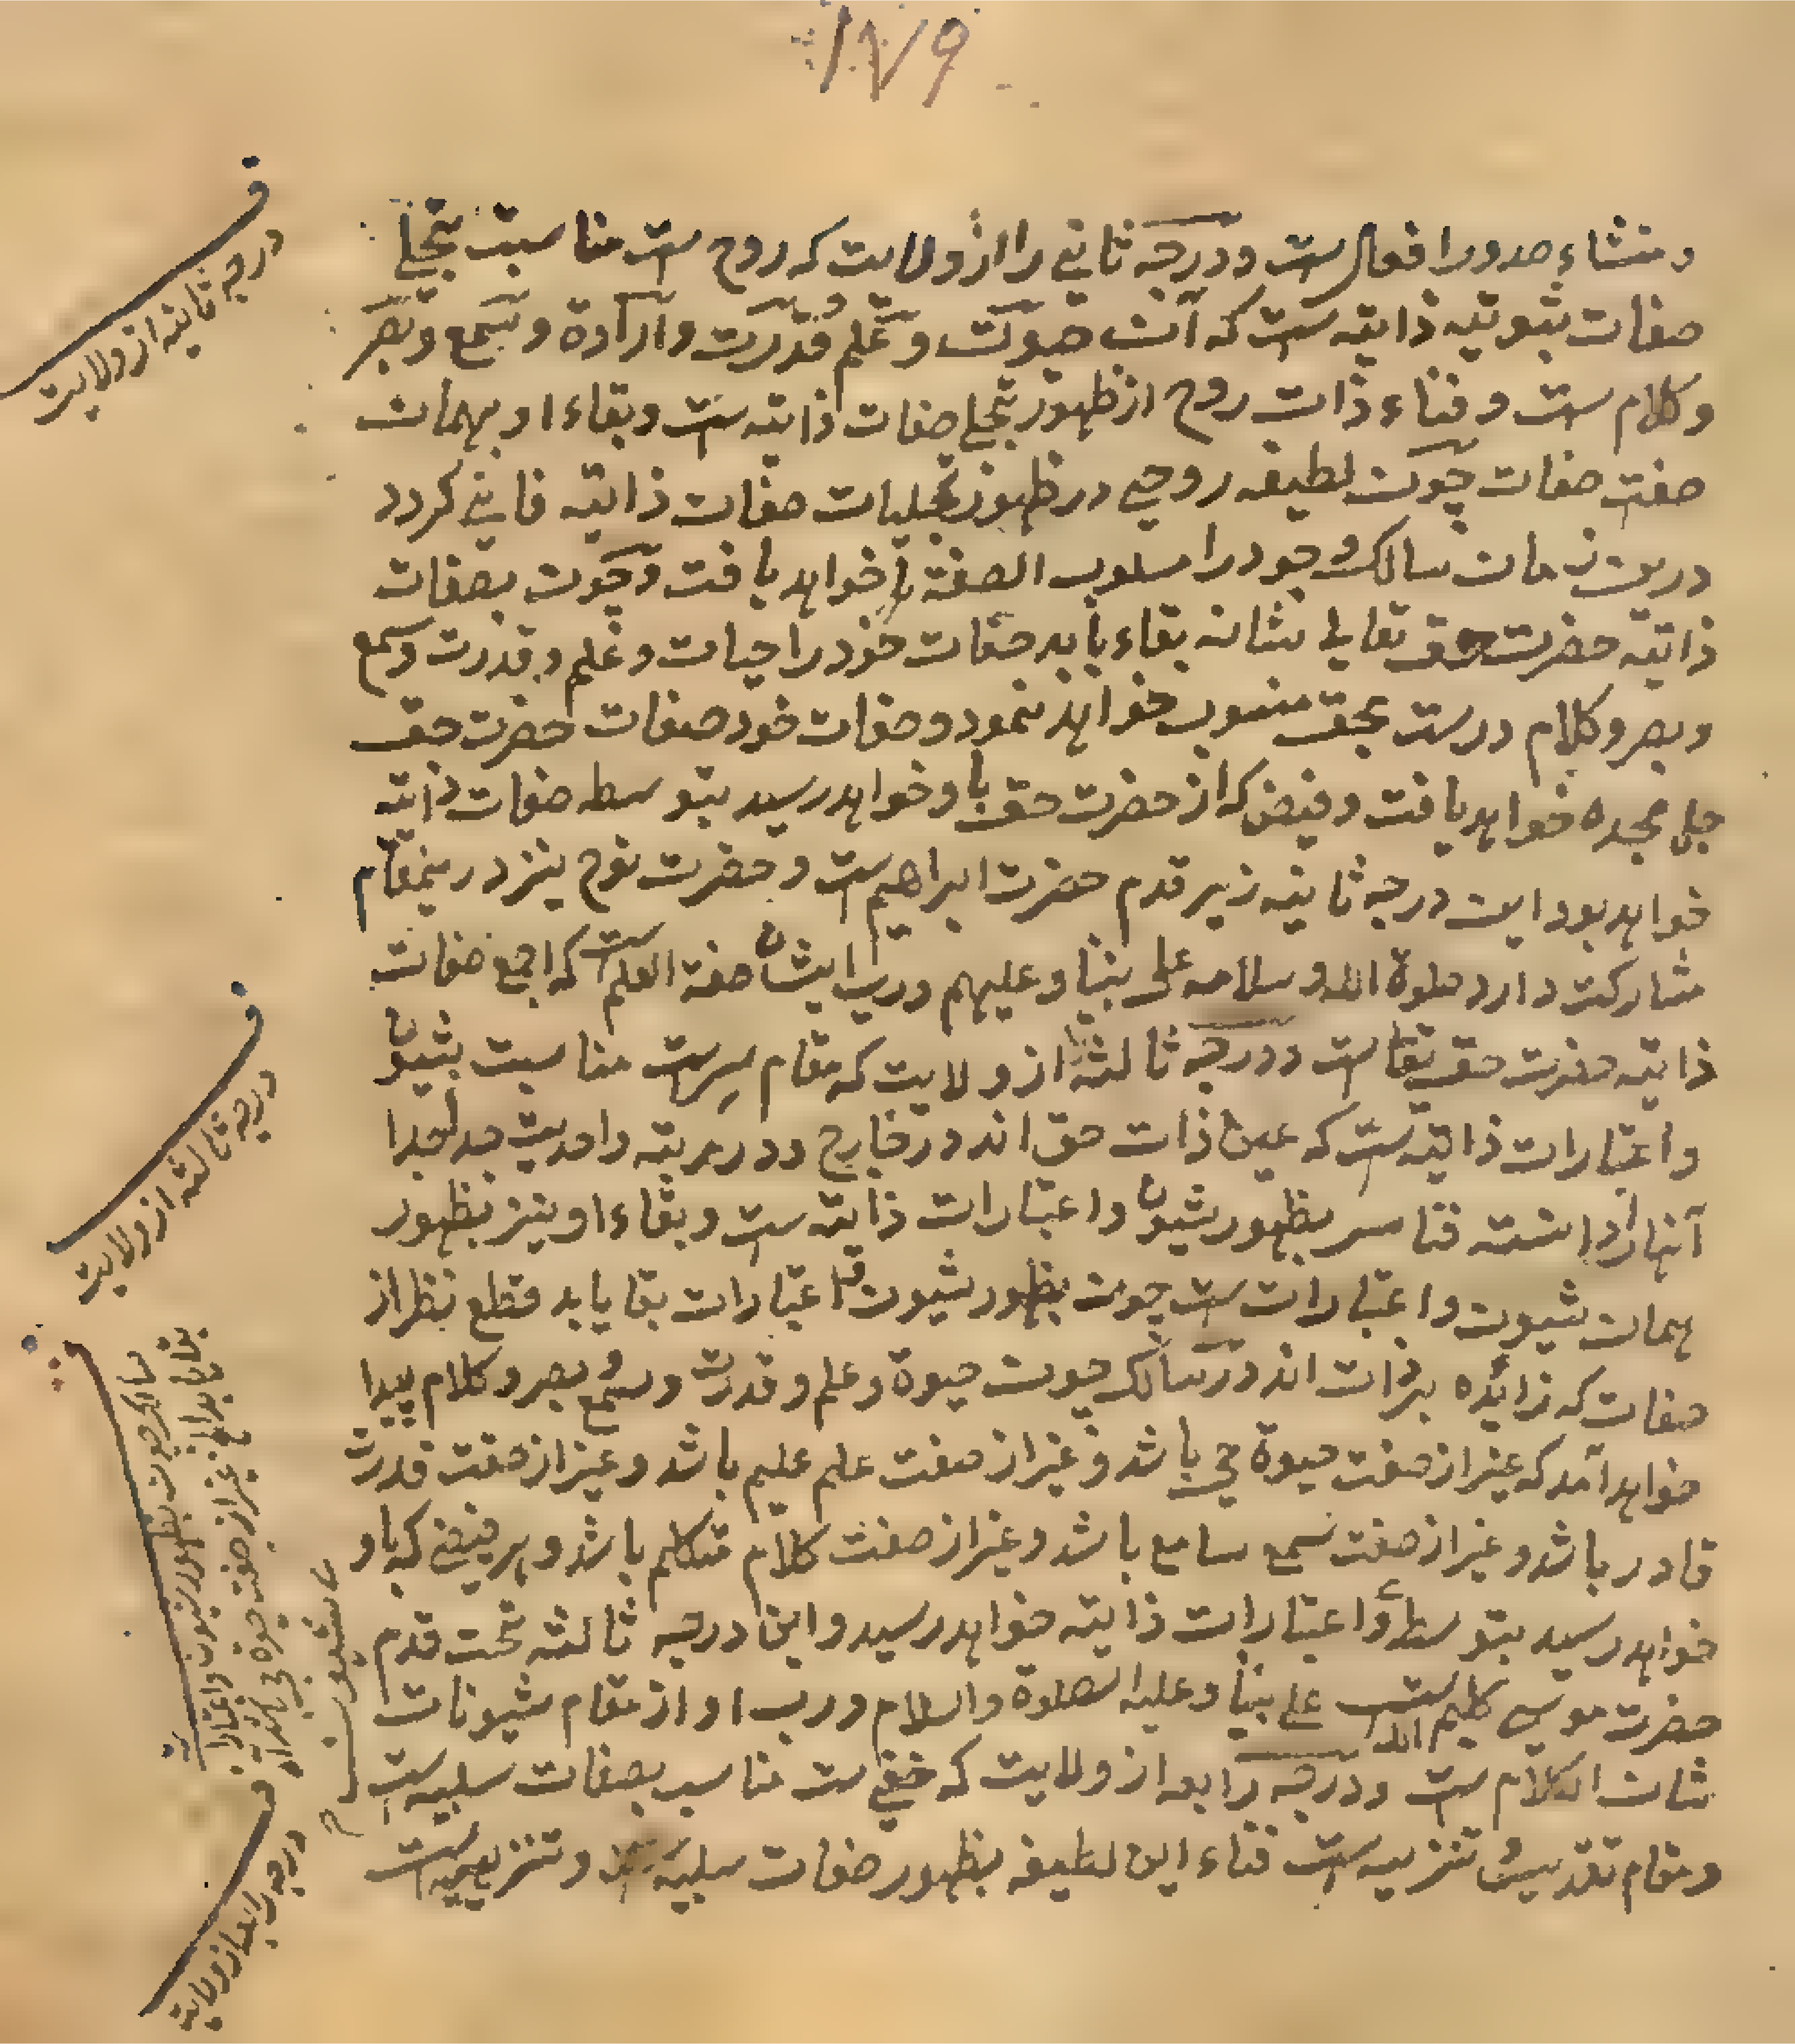 ۱۷۹
و منشاء صدور افعال ست و درجه ثانی را از ولایت که روح ست مناسبت بتجلی
صفات ثبوتیه ذاتیه ست که آن حیوت و علم قدرت و اراده و سمع و بصر
و کلام ست و فناء ذات روح از ظهور تجلی صفات ذاتیه ست و بقاء او بهمان
صفت صفات چون لطیفه روحی در ظهور تجلیات صفات ذاتیه فانی کردد
درین زمان سالک وجود را مسلوب الصفة خواهد یافت و چون بصفات
ذاتیه حضرت حق تعالی شانه بقاء یابد صفات خود را حیات و علم و قدرت و سمع
و بصر و کلام درست بحق منسوب خواهد نمود و صفات خود صفات حضرت حق
جل مجده خواهد یافت و فیض که از حضرت حق باو خواهد رسید بتوسطه صفات ذاتیه
خواهد بود این درجه ثانیه زیر قدم حضرت ابراهیم ست و حضرت نوح نیز درینمقام
مشارکت دارد صلوة الله و سلامه علی نبینا و علیهم و رب ایشان صفة العلم ست که اجمع صفات
ذاتیه حضرت حق تعا ست و درجه ثالثه از ولایت که مقام سرست مناسبت بشیون
و اعتبارات ذاتیه ست که عین ذات حق اند در خارج و در مرتبه واحدیت جدا جدا
آنها را دانسته فنا سر بظهور شیون و اعتبارات ذاتیه ست و بقاء او نیز بظهور
همان شیون و اعتبارات ست چون بظهور شیون و اعتبارات بقا یابد قطع نظر از
صفات که زائده بر ذات اند در سالک چون حیوة و علم و قدرت و سمع و بصر و کلام پیدا
خواهد آمد که غیر از صفت حیوة حی باشد و غیر از صفت علم علیم باشد و غیر از صفت قدرت
قادر باشد و غیر از صفت سمع سامع باشد و غیر از صفت کلام متکلم باشد و هر فیضی که باو
خواهد رسید بتوسط و اعتبارات ذاتیه خواهد رسید و این درجه ثالثه تحت قدم
حضرت موسی کلیم الله ست علی نبینا و علیه الصلوة والسلام و رب او از مقام شیونات
شان الکلام ست و درجه رابعه از ولایت که خفی ست مناسب بصفات سلبیه ست
و مقام تقدیس تنزیه ست فناء این لطیفه بظهور صفات سلبیه و تنزیهیه ست
ف
درجه ثانیه از ولایت
ف
درجه ثالثه از ولایت
سالک چون بظهور شیون و اعتبارات
بقا یابد غیر از صفت حیوة حی باشد
شیون
ف
درجه رابعه از ولایت